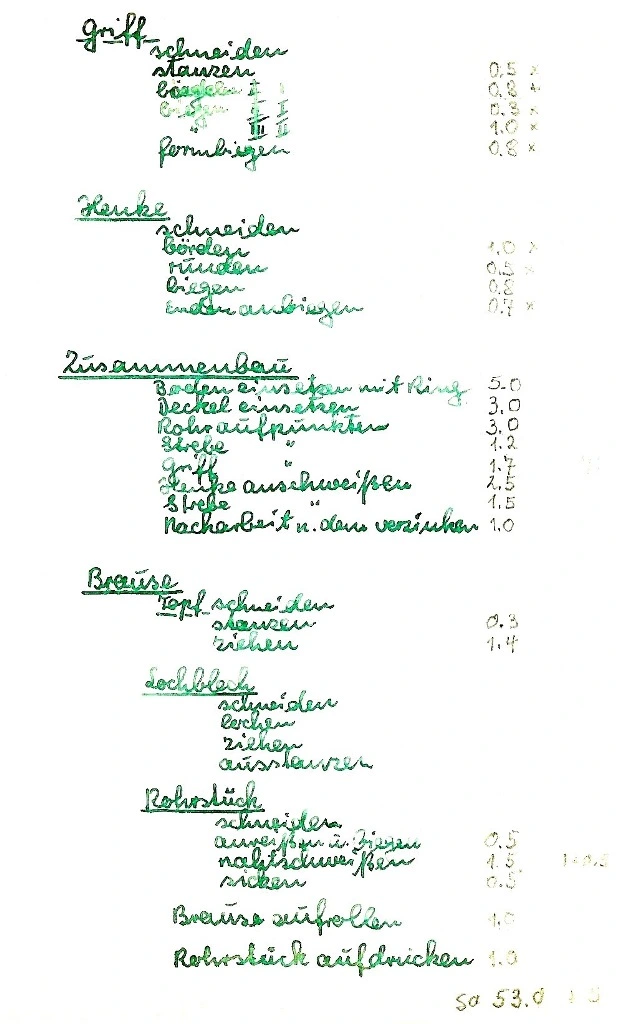 Griff
schneiden
stanzen 0.5 x
I 0.8 x
biegen II I 0.8 x
" III II 1.0 x
formbiegen 0.8 x
Henke
schneiden
börden 1.0 x
runden 0.5 x
biegen 0.8
Enden anbiegen 0.7 x
Zusammenbau
Boden einsetzen mit Ring 5.0
Deckel einsetzen 3.0
Rohr aufpunkten 3.0
Strebe " 1.2
Griff " 1.7
Henke anschweißen 2.5
Strebe " 1.5
Nacharbeit n. dem verzinken 1.0
Brause
Topf schneiden
stanzen 0.3
ziehen 1.4
Lochblech
schneiden
lochen
ziehen
ausstanzen
Rohrstück
schneiden
anreißen u. Biegen 0.5
nahtschweißen 1.5
sicken 0.5
Brause aufrollen 1.0
Rohrstück aufdrücken 1.0
Sa 53.0